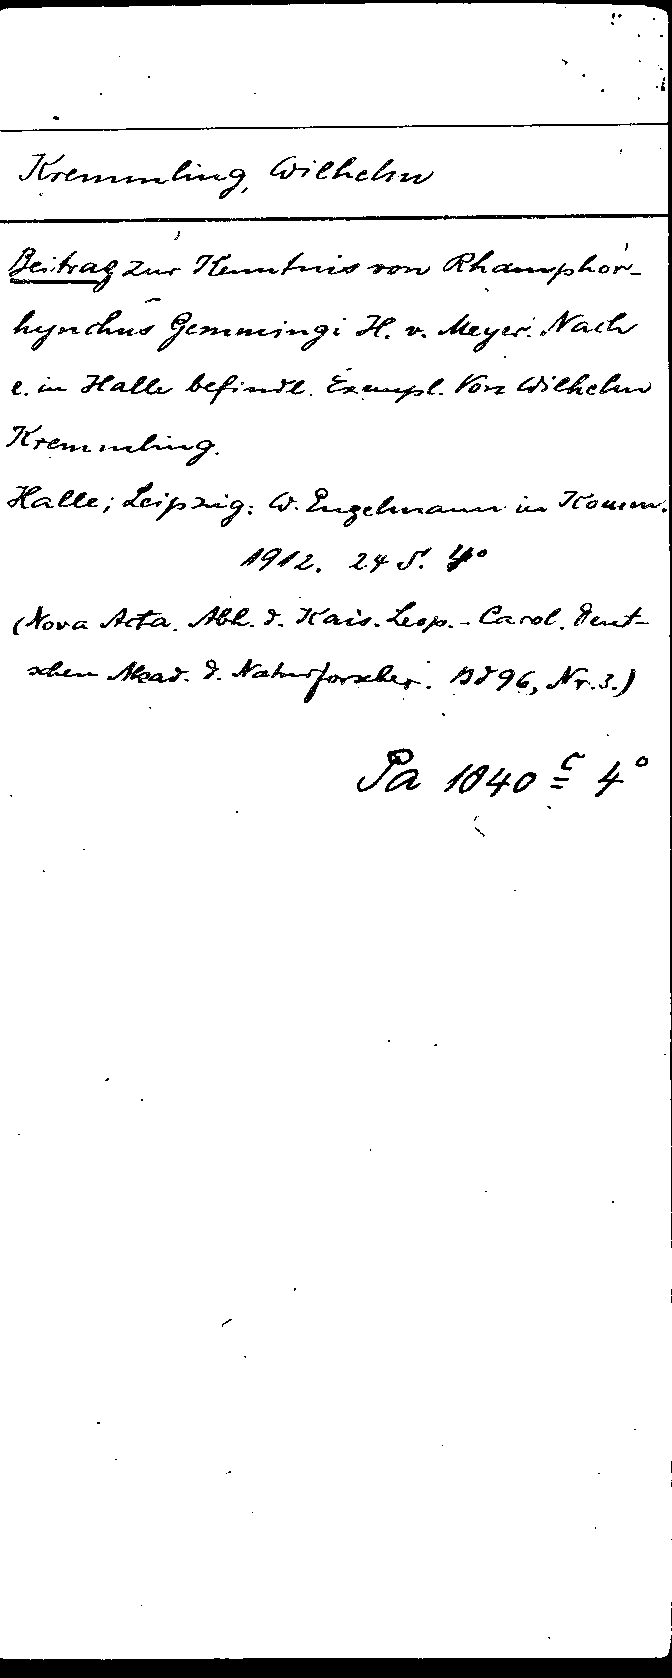 Kremmling, Wilhelm
Beitrag zur Kenntnis von Rhamphor-
hynchus Gemmingi H. v. Meyer. Nach
e. in Halle befindl. Exempl. Von Wilhelm
Kremmling.
Halle; Leipzig: W. Engelmann in Komm.
1912. 24 S. 4°
(Nova Acta. Abh. d. Kais. Leop.-Carol. Deut-
schen Akad. d. Naturforscher. Bd 96, Nr. 3.)
Pa 1840 c 4°